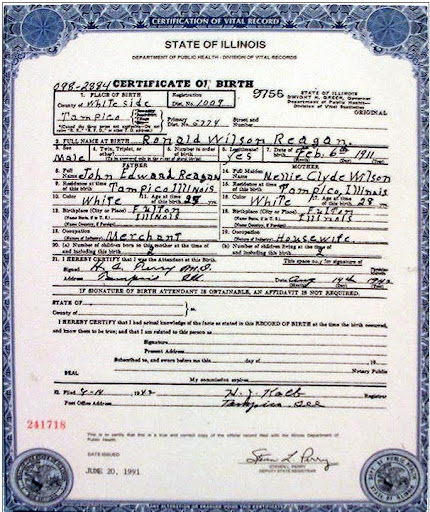 CERTIFICATION OF VITAL RECORD
STATE OF ILLINOIS
DEPARTMENT OF PUBLIC HEALTH - DIVISION OF VITAL RECORDS
098-2884 CERTIFICATE OF BIRTH
1. PLACE OF BIRTH Registration 9756 STATE OF ILLINOIS
DWIGHT H. GREEN, Governor
County of Whiteside Dist. No. 1009 Department of Public Health—
Division of Vital Statistics
Tampico Primary Dist. No. 5774 Street and Number ORIGINAL
2. FULL NAME AT BIRTH Ronald Wilson Reagan
3. Sex Male 4. Twin, Triplet, or Other? 5. Number in order of birth 6. Legitimate? yes Date of birth Feb. 6th 1911
FATHER MOTHER
8. Full Name John Edward Reagan 14. Full Maiden Name Nellie Clyde Wilson
9. Residence at time of this birth Tampico Illinois 15. Residence at time of this birth Tampico, Illinois
10. Color White 11. Age at time of this birth 28 yrs. 16. Color White 17. Age at time of this birth 28 yrs.
12. Birthplace (City or Place) Fulton 18. Birthplace (City or Place) Fulton
(Name State, if in U.S.) Illinois (Name State, if in U.S.) Illinois
(Name Country, if Foreign) (Name Country, if Foreign)
13. Occupation 19. Occupation
(Nature of Industry) Merchant (Nature of Industry) Housewife
20. (a) Number of children born to this mother at the time and including this birth 2 (b) Number of children living at the time and including this birth 2
21. I HEREBY CERTIFY that I was the Attendant at this Birth. This space only for signature of
Signed H. A. Perry M.D.
Address Tampico Ill. Date Aug 14th 1942
IF SIGNATURE OF BIRTH ATTENDANT IS OBTAINABLE, AN AFFIDAVIT IS NOT REQUIRED.
STATE OF
County of
I HEREBY CERTIFY that I had actual knowledge of the facts as stated in this RECORD OF BIRTH at the time the birth occurred,
and know them to be true; and that I am related to this person as
Signature
Present Address
Subscribed to, and sworn before me this day of , 19
SEAL Notary Public
My commission expires
22. Filed 8-14 1942 H. J. Kalb Registrar
Post Office Address Tampico Ill
241718
This is to certify that this is a true and correct copy of the official record filed with the Illinois Department of
Public Health.
DATE ISSUED
JUNE 20, 1991
STEVEN L. PERRY
DEPUTY STATE REGISTRAR
ANY ALTERATION OR ERASURE VOIDS THIS CERTIFICATE